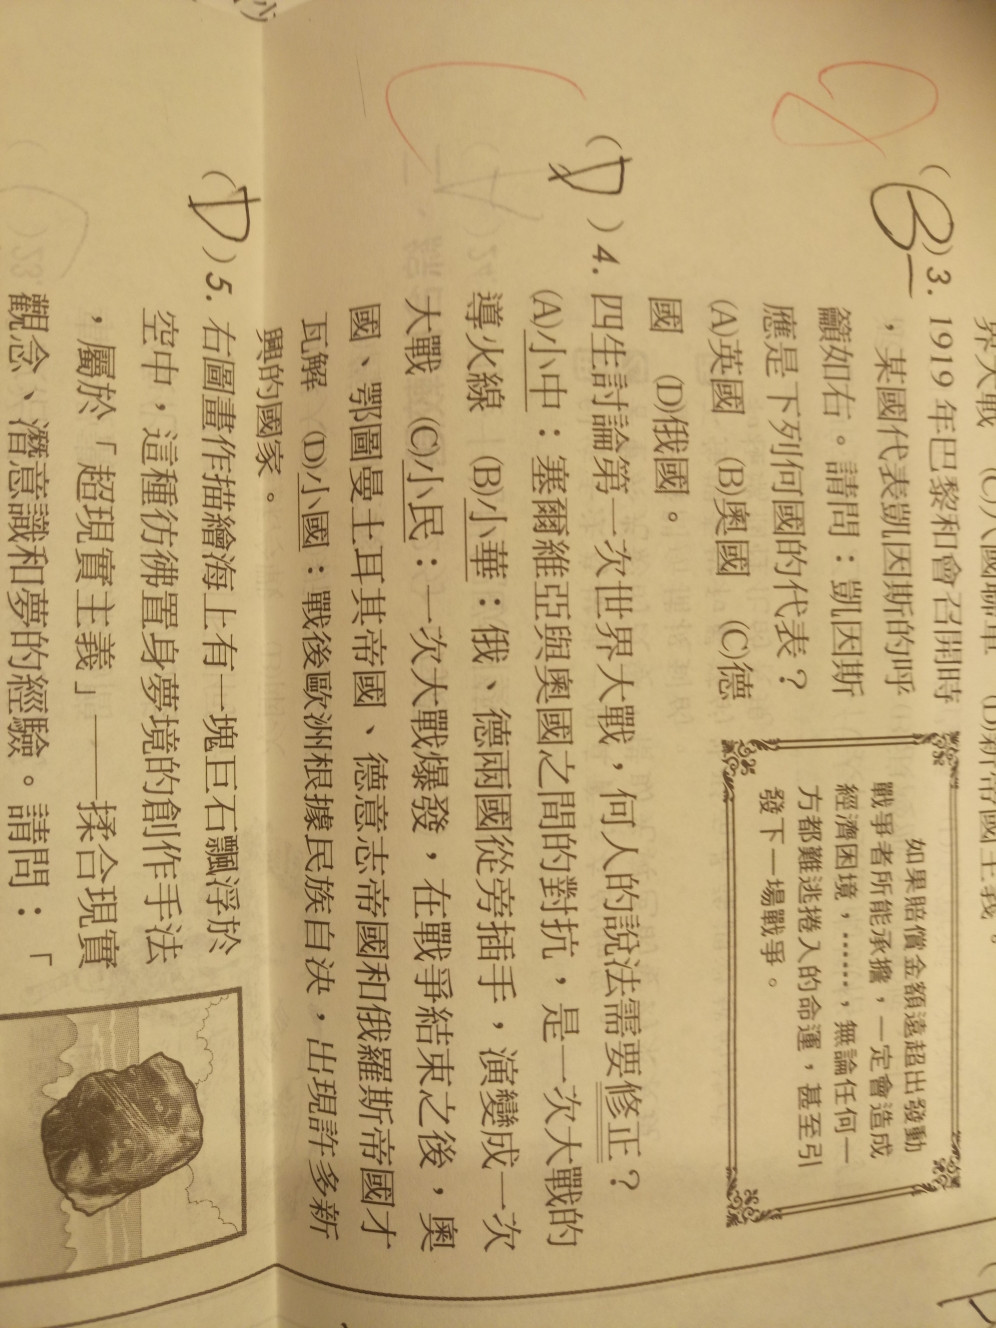 界大戰 (C)八國聯軍 (D)新帝國主義。
(B) 3. 1919 年巴黎和會召開時
，某國代表凱因斯的呼
籲如右。請問：凱因斯
應是下列何國的代表？
(A)英國 (B)奧國 (C)德
國 (D)俄國。
如果賠償金額遠超出發動
戰爭者所能承擔，一定會造成
經濟困境，……，無論任何一
方都難逃捲入的命運，甚至引
發下一場戰爭。
(D) 4. 四生討論第一次世界大戰，何人的說法需要修正？
(A)小中：塞爾維亞與奧國之間的對抗，是一次大戰的
導火線 (B)小華：俄、德兩國從旁插手，演變成一次
大戰 (C)小民：一次大戰爆發，在戰爭結束之後，奧
國、鄂圖曼土耳其帝國、德意志帝國和俄羅斯帝國才
瓦解 (D)小國：戰後歐洲根據民族自決，出現許多新
興的國家。
(D) 5. 右圖畫作描繪海上有一塊巨石飄浮於
空中，這種彷彿置身夢境的創作手法
，屬於「超現實主義」——揉合現實
觀念、潛意識和夢的經驗。請問：「